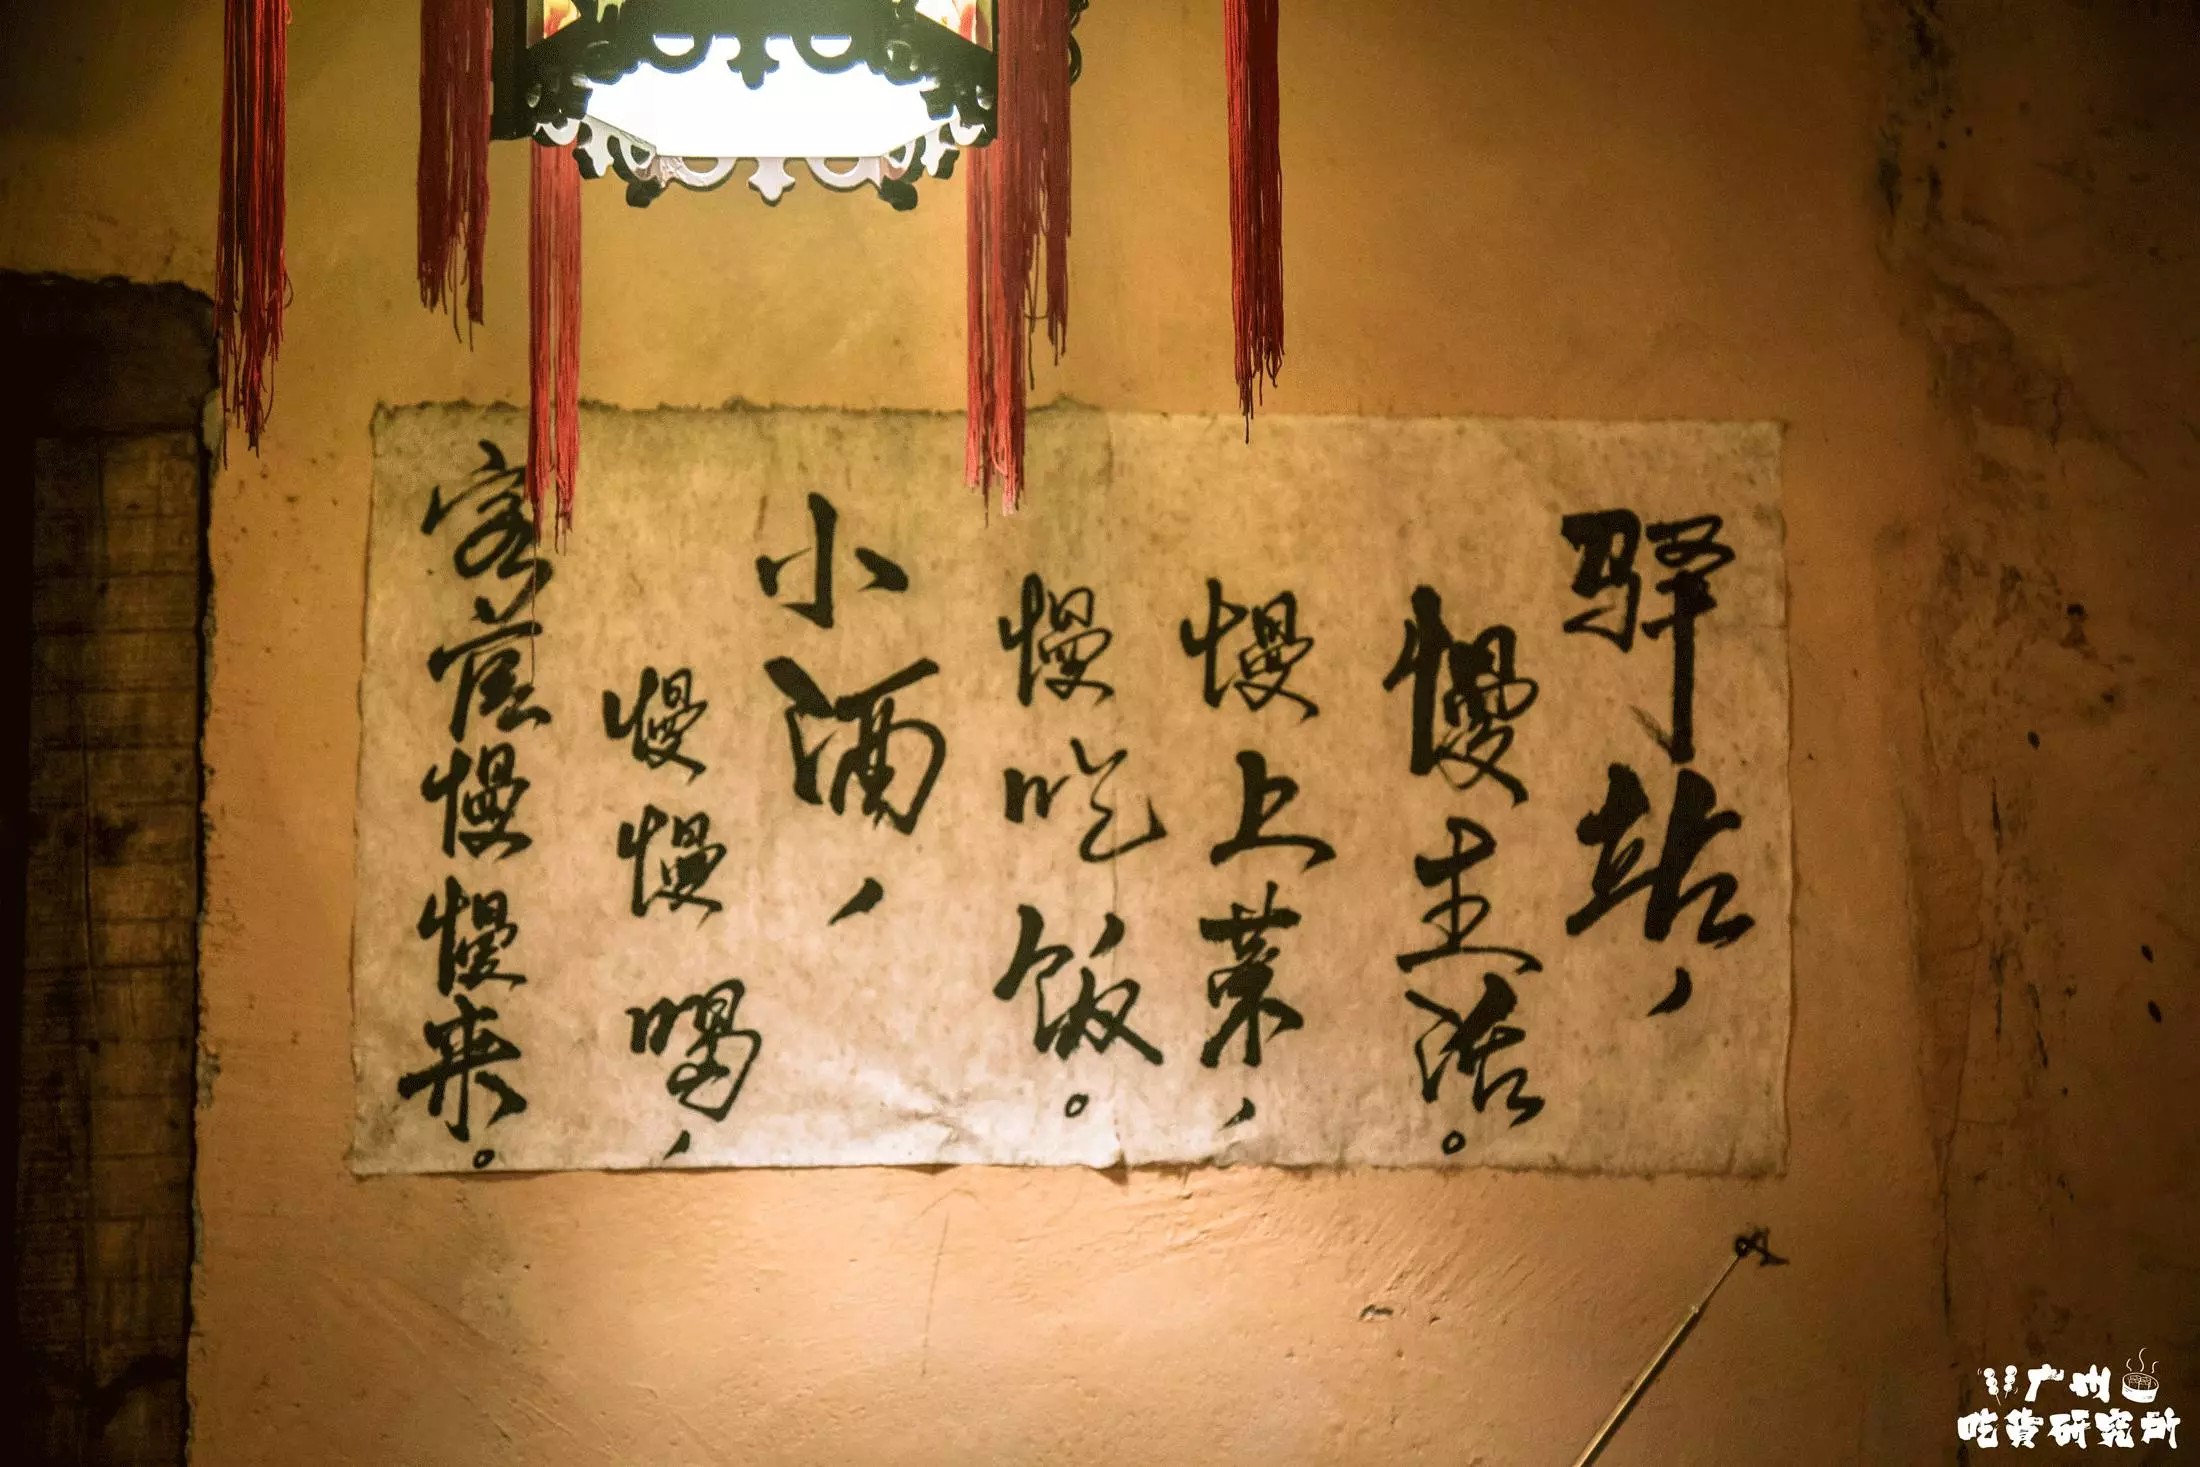 驿站，
慢生活。
慢上菜，
慢吃饭。
小酒，
慢慢喝，
客官慢慢来。
广州
吃貨研究所